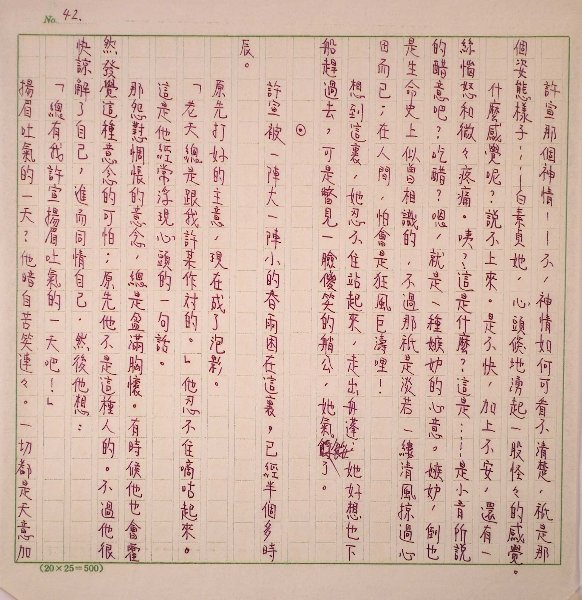 No. 42.
許宣那個神情——不,神情如何可看不清楚,祇是那
個姿態樣子……白素貞她,心頭倏地湧起一股怪々的感覺。
什麼感覺呢?說不上來。是不快,加上不安,還有一
絲惱怒和微々疼痛。咦?這是什麼?這是……是小青所說
的醋意吧?吃醋?嗯,就是一種嫉妒的心意。嫉妒,倒也
是生命史上似曾相識的,不過那祇是淡若一縷清風掠過心
田而已;在人間,怕會是狂風巨濤哩!
想到這裏,她忍不住站起來,走出舟蓬;她好想也下
船趕過去,可是瞥見一臉傻笑的梢公,她氣餒了。
⊙
許宣被一陣大一陣小的春雨困在這裏,已經半個多時
辰。
原先打好的主意,現在成了泡影。
「老天總是跟我許某作對的。」他忍不住嘀咕起來。
這是他經常浮現心頭的一句話。
那怨懟惆悵的意念,總是盈滿胸懷。有時候他也會霍
然發覺這種意念的可怕;原先他不是這種人的。不過他很
快諒解了自己,進而同情自己,然後他想:
「總有我許宣揚眉吐氣的一天吧!」
揚眉吐氣的一天?他暗自苦笑連々。一切都是天意加
(20×25=500)